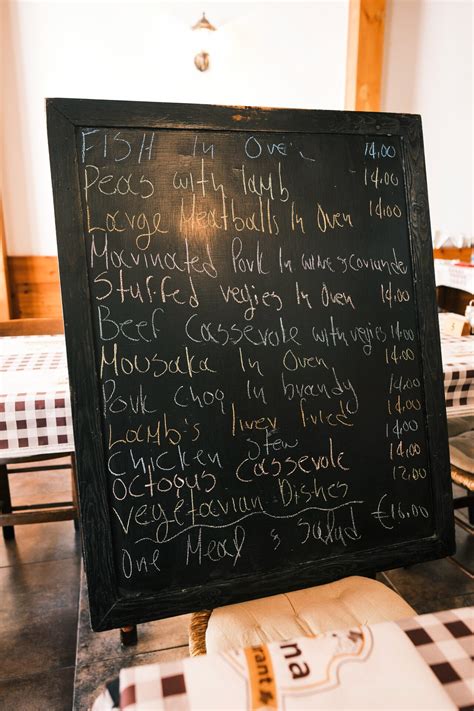 FISH In Oven 14,00
Peas with lamb 14,00
Large Meatballs In Oven 14,00
Marinated Pork In wine & Coriander
Stuffed vegies In Oven 14,00
Beef Casserole with vegies 14,00
Mousaka In Oven 14,00
Pork Chop In brandy 14,00
Lamb's liver fried 14,00
Chicken Stew 14,00
Octopus Casserole 14,00
Vegetarian Dishes 12,00
One Meal & Salad €16,00
na
rant